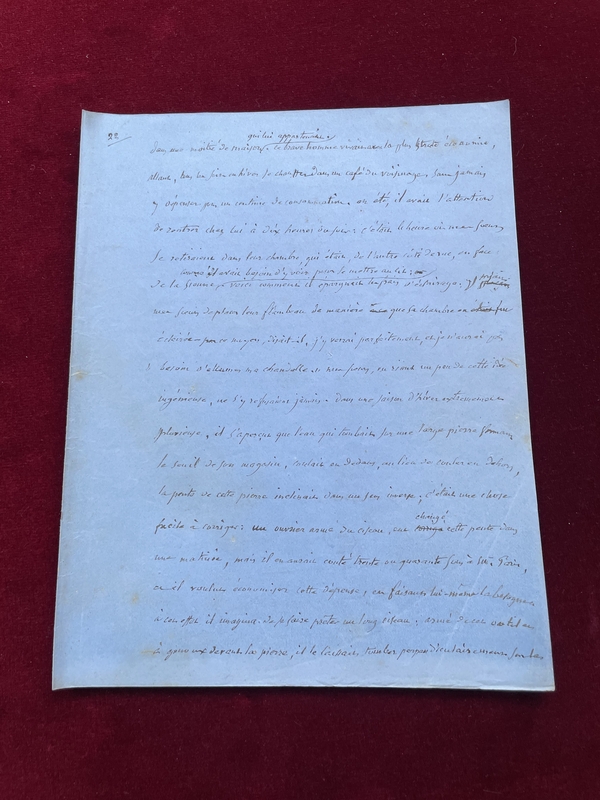 22
qui lui appartenait.
dans une moitié de maison. Ce brave homme vivait avec la plus stricte économie,
allant, tous les soirs en hiver se chauffer dans un café du voisinage, sans jamais
y dépenser un centime de consommation. en été, il avait l'attention
de rentrer chez lui à dix heures du soir: c'était l'heure où mes sœurs
se retiraient dans leur chambre, qui était de l'autre côté de rue, en face
il avait besoin d'y voir pour se mettre au lit:
de la sienne. voici comment il épargnait les frais d'éclairage. Il priait
mes sœurs de placer leur flambeau de manière que sa chambre en fut
éclairée. par ce moyen, disait-il, j'y verrai parfaitement, et je n'aurai pas
besoin d'allumer ma chandelle. mes sœurs, en riant un peu de cette idée
ingénieuse, ne s'y refusaient jamais. Dans une saison d'hiver extrêmement
pluvieuse, il s'aperçut que l'eau qui tombait sur une large pierre formant
le seuil de son magasin, coulait en dedans, au lieu de couler en dehors,
la pente de cette pierre inclinait dans un sens inverse. c'était une chose
changé
facile à corriger: un ouvrier armé du ciseau, eut cette pente dans
une matinée, mais il en aurait coûté trente ou quarante sous à Mr Pain,
et il voulut économiser cette dépense, en faisant lui-même la besogne
à cet effet il imagina de se faire prêter un long ciseau: armé de cet outil et
à genoux devant la pierre, il le laissait tomber perpendiculairement sur les